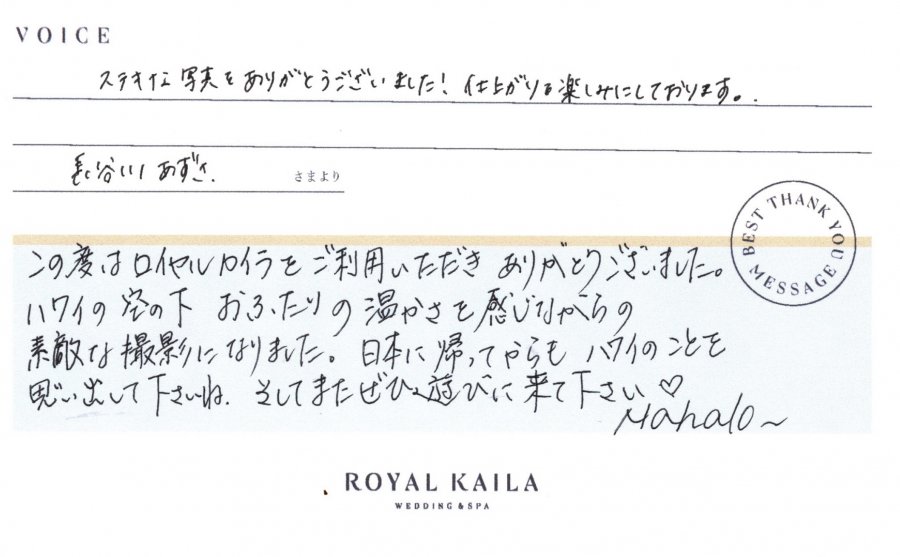 VOICE
ステキな写真をありがとうございました! 仕上がりを楽しみにしております。
長谷川 あずさ.
さまより
BEST THANK YOU MESSAGE
この度はロイヤルカイラをご利用いただき ありがとうございました。
ハワイの空の下 おふたりの温かさを感じながらの
素敵な撮影になりました。日本に帰ってからも ハワイのことを
思い出して下さいね. そしてまたぜひ遊びに来て下さい♡
Mahalo~
ROYAL KAILA
WEDDING & SPA